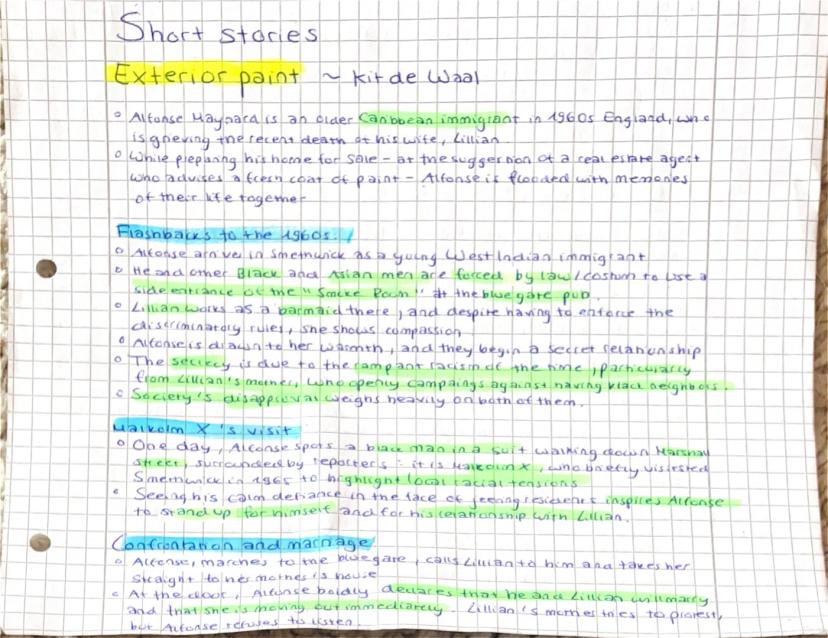 Short stories
Exterior paint ~ Kit de Waal
° Alfonse Maynard is an older Caribbean immigrant in 1960s England, who
is grieving the recent death of his wife, Lillian
° While preparing his home for sale – at the suggestion of a real estate agent
who advises a fresh coat of paint – Alfonse is flooded with memories
of their life together
Flashbacks to the 1960s:
° Alfonse arrives in Smethwick as a young West Indian immigrant
° He and other Black and Asian men are forced by law/costum to use a
side entrance of the "Smoke Room" at the bluegate pub.
° Lillian works as a barmaid there, and despite having to enforce the
discriminatory rules, she shows compassion
° Alfonse is drawn to her warmth, and they begin a secret relationship
° The secrecy is due to the rampant racism of the time, particularly
from Lillian's mother, who openly campaings against having black neighbors.
° Society's disapproval weighs heavily on both of them.
Malkolm X's visit
° One day, Alfonse spots a black man in a suit walking down Marshall
street, surrounded by reporters: it is Malkolm X, who briefly visisted
Smethwick in 1965 to highlight local racial tensions
° Seeing his calm defiance in the face of jeering residents inspires Alfonse
to stand up for himself and for his relationship with Lillian.
Confrontation and marriage
° Alfonse, marches to the bluegate, calls Lillian to him and takes her
straight to her mother's house
° At the door, Alfonse boldly declares that he and Lillian will marry
and that she is moving out immediately. Lillian's mother tries to protest,
but Alfonse refuses to listen.